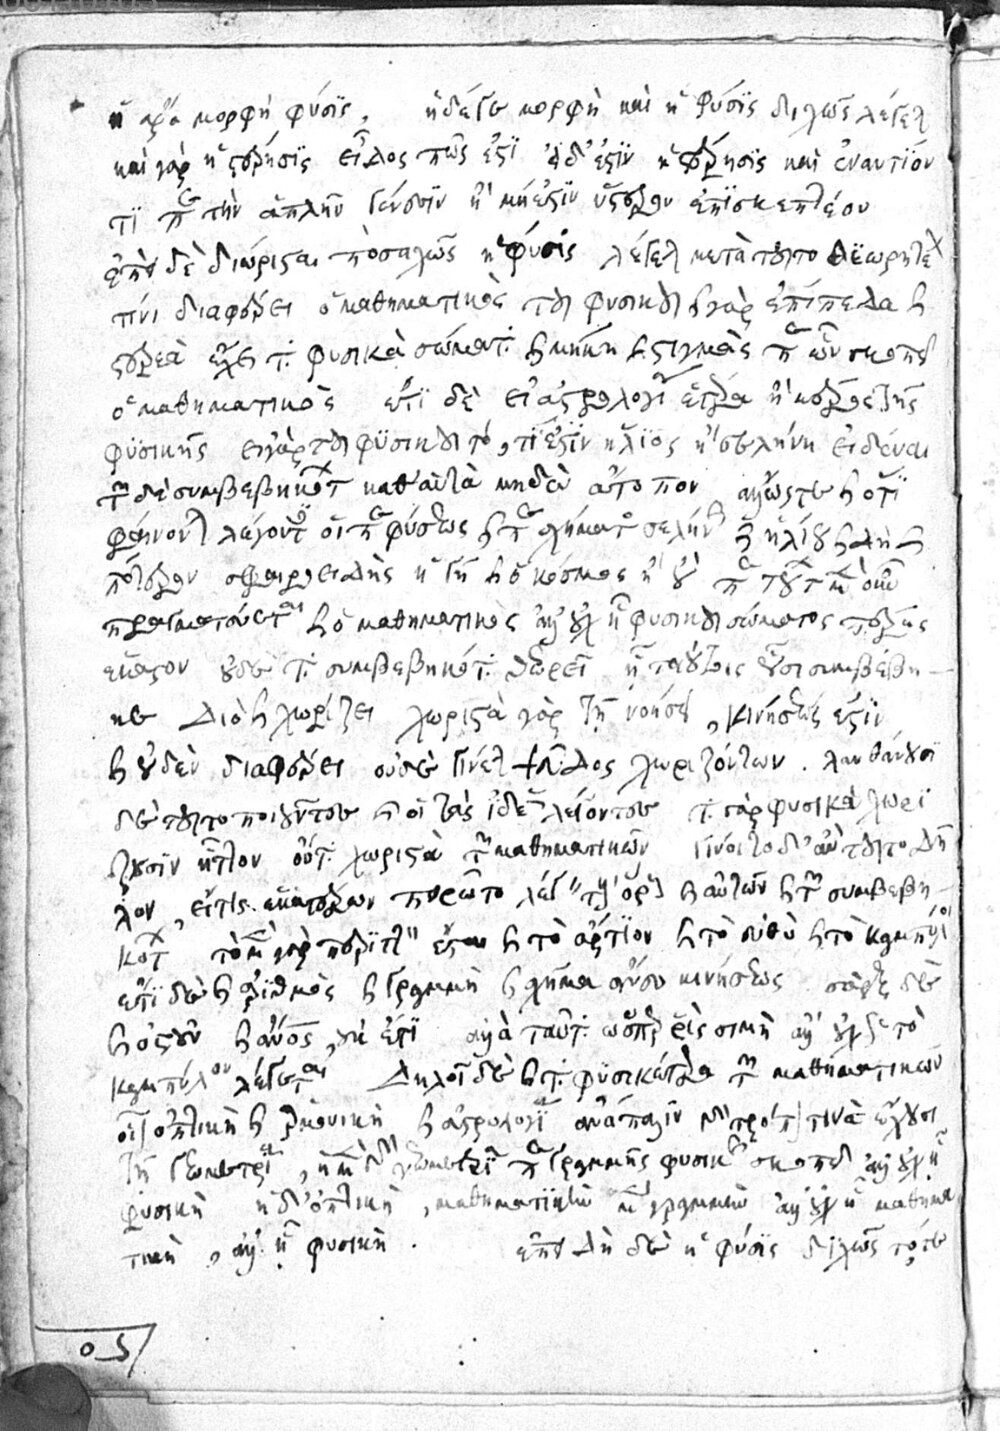 ἡ ἄρα μορφὴ φύσϊς, ἡ δέ γε μορφὴ καὶ ἡ φύσϊς διχῶς λέγεται
καὶ γὰρ ἡ στέρησϊς εἶδος πώς ἐστϊ εἰ δ' ἐστϊν ἡ στέρησϊς καὶ ἐναντίον
τϊ περὶ τὴν ἁπλῆν γένεσϊν ἢ μὴ ἐστϊν ὕστερον ἐπϊσκεπτέον
ἐπεὶ δὲ διώρισται ποσαχῶς ἡ φύσις λέγεται μετὰ τοῦτο θεωρητέον
τίνι διαφέρει ὁ μαθηματικὸς τοῦ φυσικοῦ καὶ γὰρ ἐπίπεδα καὶ
στερεὰ ἔχει τὰ φυσικὰ σώματα καὶ μήκη καὶ στιγμὰς περὶ ὧν σκοπεῖ
ὁ μαθηματικὸς ἔτϊ δὲ εἰ ἀστρολογία ἑτέρα ἢ μέρος τῆς
φϋσικῆς εἰ γὰρ τοῦ φϋσικοῦ τό, τί ἐστϊν ἥλϊος ἢ σελήνη εἰδέναι
τῶν δὲ συμβεβηκότων καθ' αὑτὰ μηδὲν ἄτοπον ἄλλως τε καὶ ὅτϊ
φαίνονται λέγοντες οἱ περὶ φύσεως καὶ περὶ σχήματος σελήνης καὶ ἡλίου καὶ δὴ καὶ
πότερον σφαιροειδὴς ἡ γῆ καὶ ὁ κόσμος ἢ οὔ περὶ τούτων μὲν οὖν
πραγματεύεται καὶ ὁ μαθηματικὸς ἀλλ' οὐχ ᾗ φυσικοῦ σώματος πέρας
ἕκαστον οὐδὲ τὰ συμβεβηκότα θεωρεῖ ᾗ τοιούτοις οὖσι συμβέβη-
κε Διὸ καὶ χωρίζει χωριστὰ γὰρ τῇ νοήσει, κινήσεώς ἐστϊν
καὶ οὐδὲν διαφέρει οὐδὲ γίνεται ψεῦδος χωριζόντων. λανθάνουσι
δὲ τοῦτο ποιοῦντες καὶ οἱ τὰς ἰδέας λέγοντες τὰ γὰρ φυσικὰ χωρί
ζουσϊν ἧττον ὄντα χωριστὰ τῶν μαθηματικῶν γίνοιτο δ' ἂν τοῦτο δῆ
λον, εἴ τις ἑκατέρων πειρῷτο λέγειν τοὺς ὅρους καὶ αὐτῶν καὶ τῶν συμβεβη-
κότων τὸ μὲν γὰρ περϊττὸν ἔσται καὶ τὸ ἄρτϊον καὶ τὸ εὐθὺ καὶ τὸ καμπύλον
ἔτϊ δὲ καὶ ἀρϊθμὸς καὶ γραμμὴ καὶ σχῆμα ἄνευ κινήσεως σὰρξ δὲ
καὶ ὀστοῦν καὶ ἄνθρωπος οὐκ ἔτϊ ἀλλὰ ταῦτα ὥσπερ ῥὶς σιμὴ ἀλλ' οὐχ ὡς τὸ
καμπύλον λέγεται Δηλοῖ δὲ καὶ τὰ φϋσικώτερα τῶν μαθηματικῶν
οἷον ὀπτικὴ καὶ ἁρμονικὴ καὶ ἀστρολογία ἀνάπαλϊν γὰρ τρόπον τινὰ ἔχουσι
τῇ γεωμετρίᾳ, ἡ μὲν γὰρ γεωμετρία περὶ γραμμῆς φυσικῆς σκοπεῖ ἀλλ' οὐχ ᾗ
φυσικὴ ἡ δ' ὀπτικὴ, μαθηματϊκὴν μὲν γραμμὴν ἀλλ' οὐχ ᾗ μαθημα
τικὴ, ἀλλ' ᾗ φυσικὴ. ἐπεὶ δὴ δὲ ἡ φύσϊς διχῶς τότε